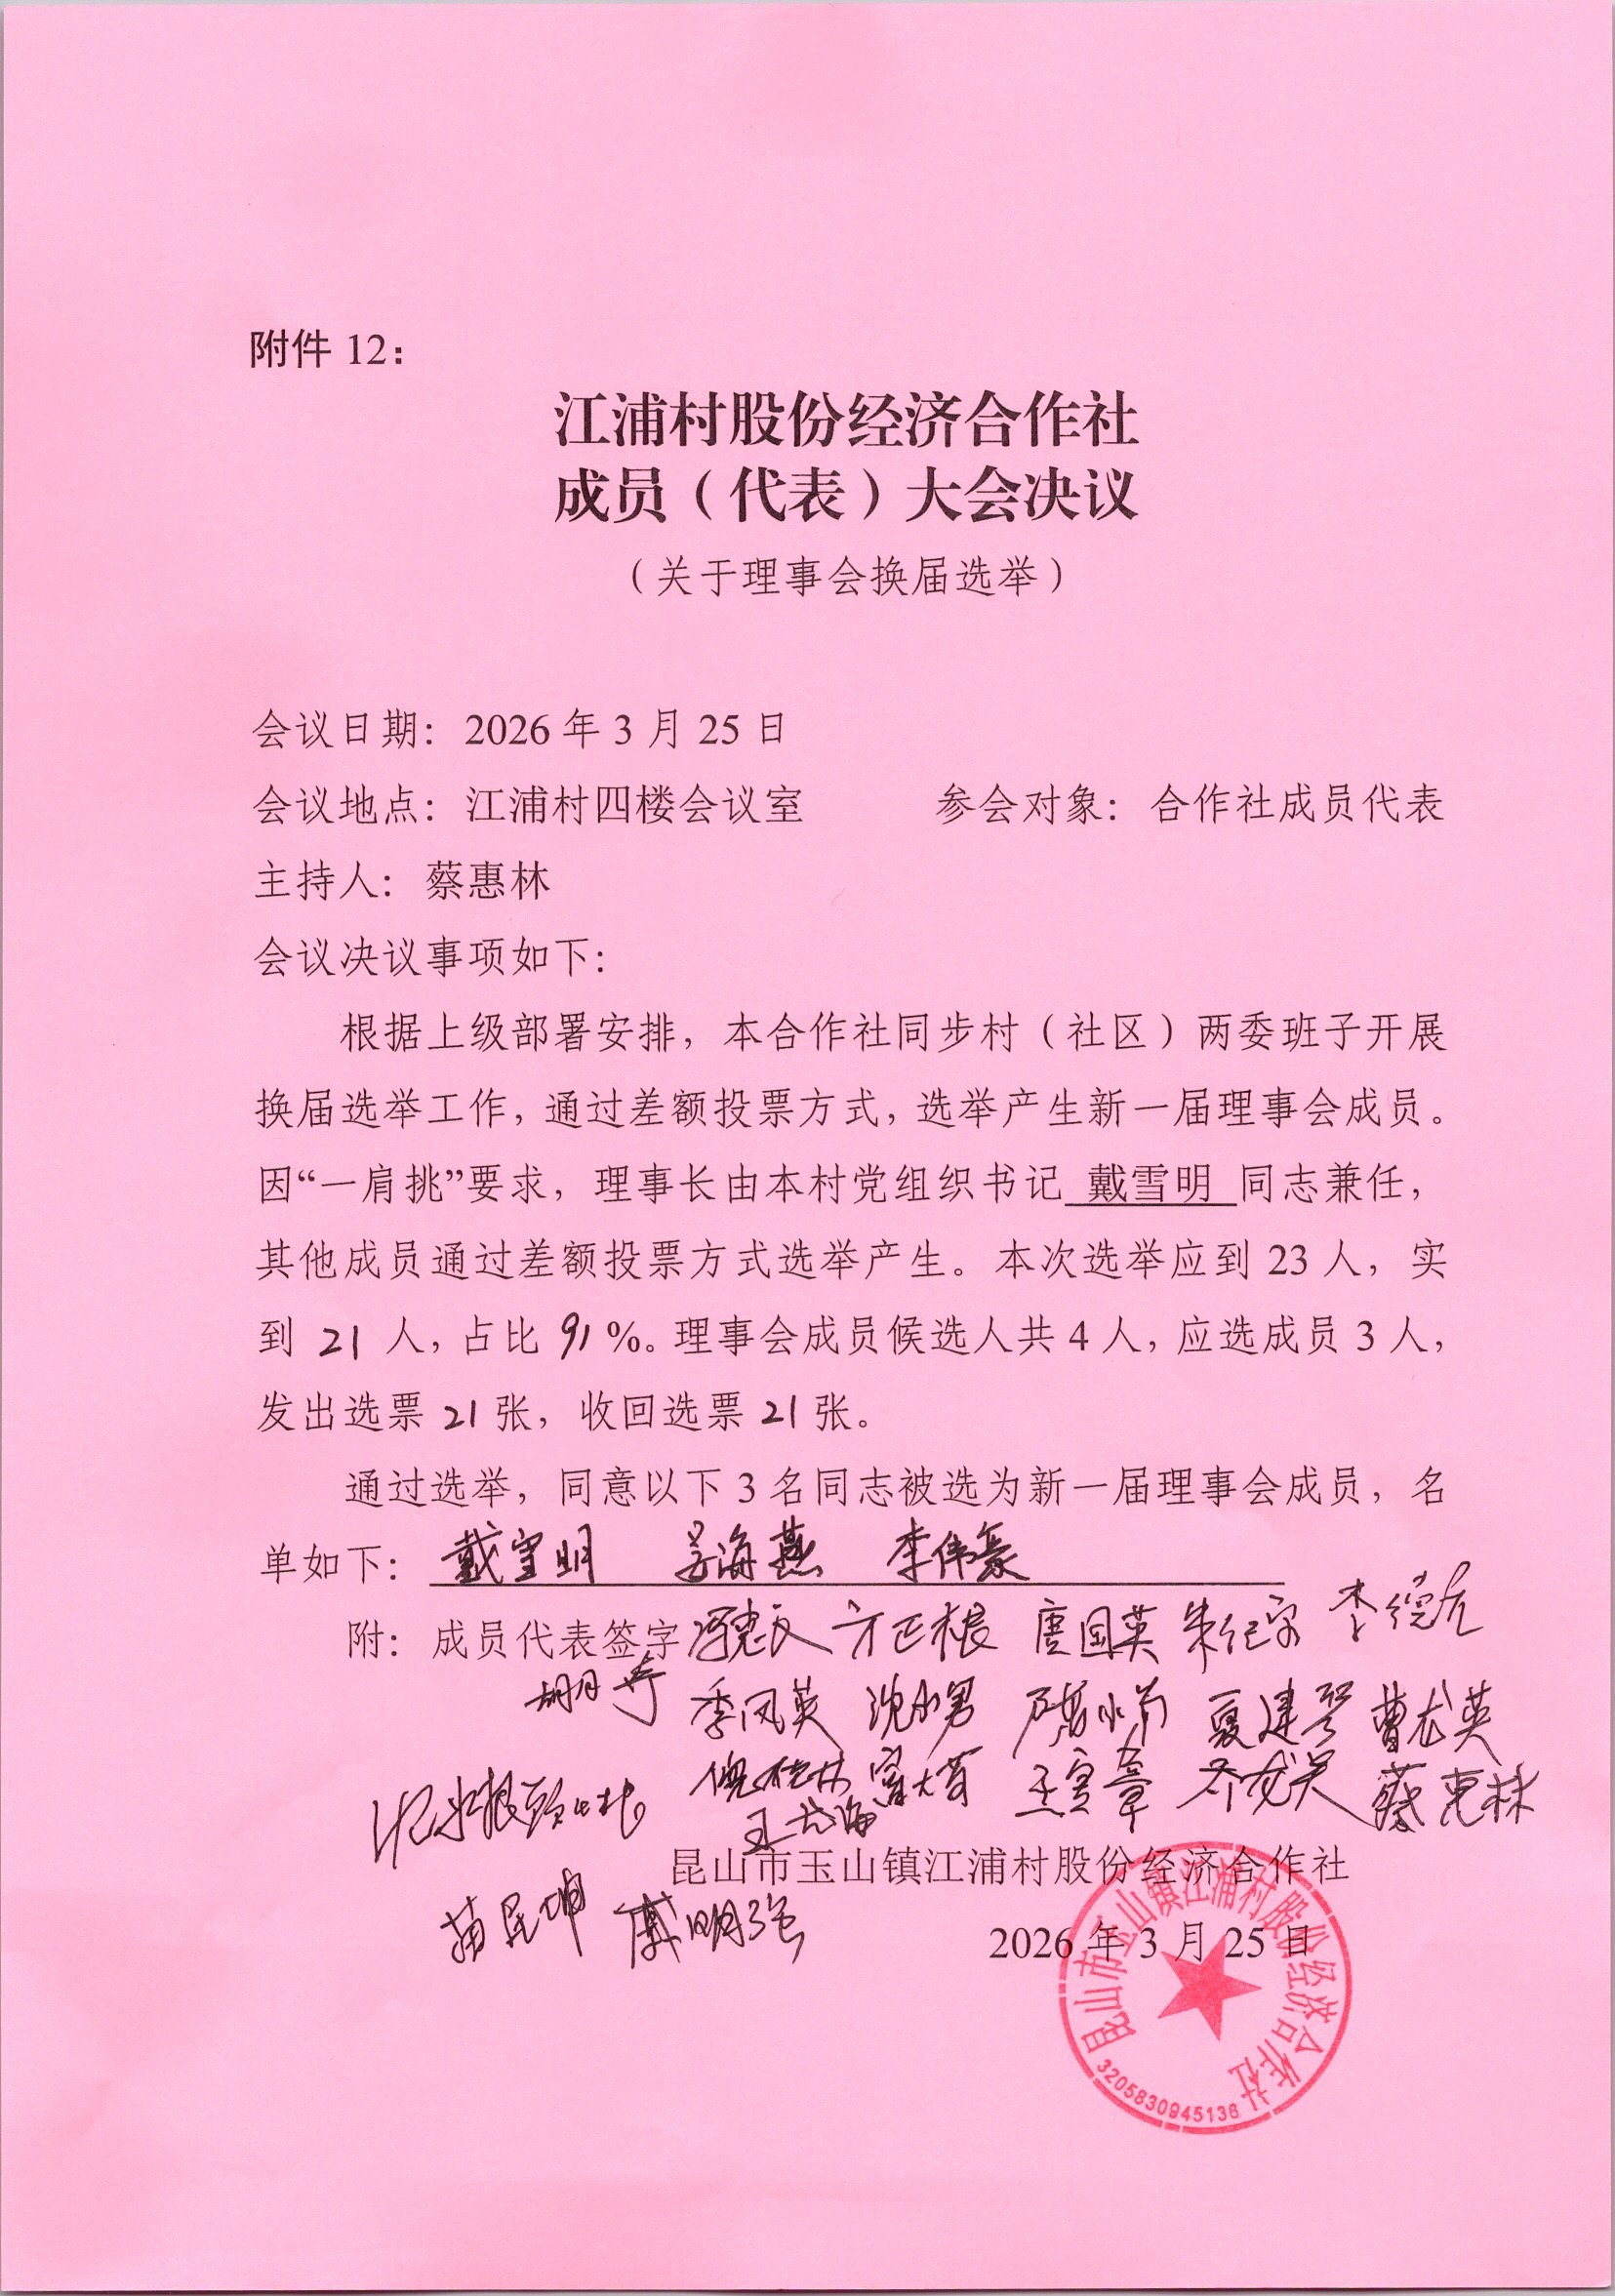 附件 12：
江浦村股份经济合作社
成员（代表）大会决议
（关于理事会换届选举）
会议日期：2026 年 3 月 25 日
会议地点：江浦村四楼会议室 参会对象：合作社成员代表
主持人：蔡惠林
会议决议事项如下：
根据上级部署安排，本合作社同步村（社区）两委班子开展
换届选举工作，通过差额投票方式，选举产生新一届理事会成员。
因“一肩挑”要求，理事长由本村党组织书记 戴雪明 同志兼任，
其他成员通过差额投票方式选举产生。本次选举应到 23 人，实
到 21 人，占比 91 %。理事会成员候选人共 4 人，应选成员 3 人，
发出选票 21 张，收回选票 21 张。
通过选举，同意以下 3 名同志被选为新一届理事会成员，名
单如下：戴雪明 李伟豪
附：成员代表签字 方正根 唐国英
季凤英 沈小男 夏建琴 曹龙英
蔡惠林
昆山市玉山镇江浦村股份经济合作社
傅明强
2026 年 3 月 25 日
昆山市玉山镇江浦村股份经济合作社
3205830945136